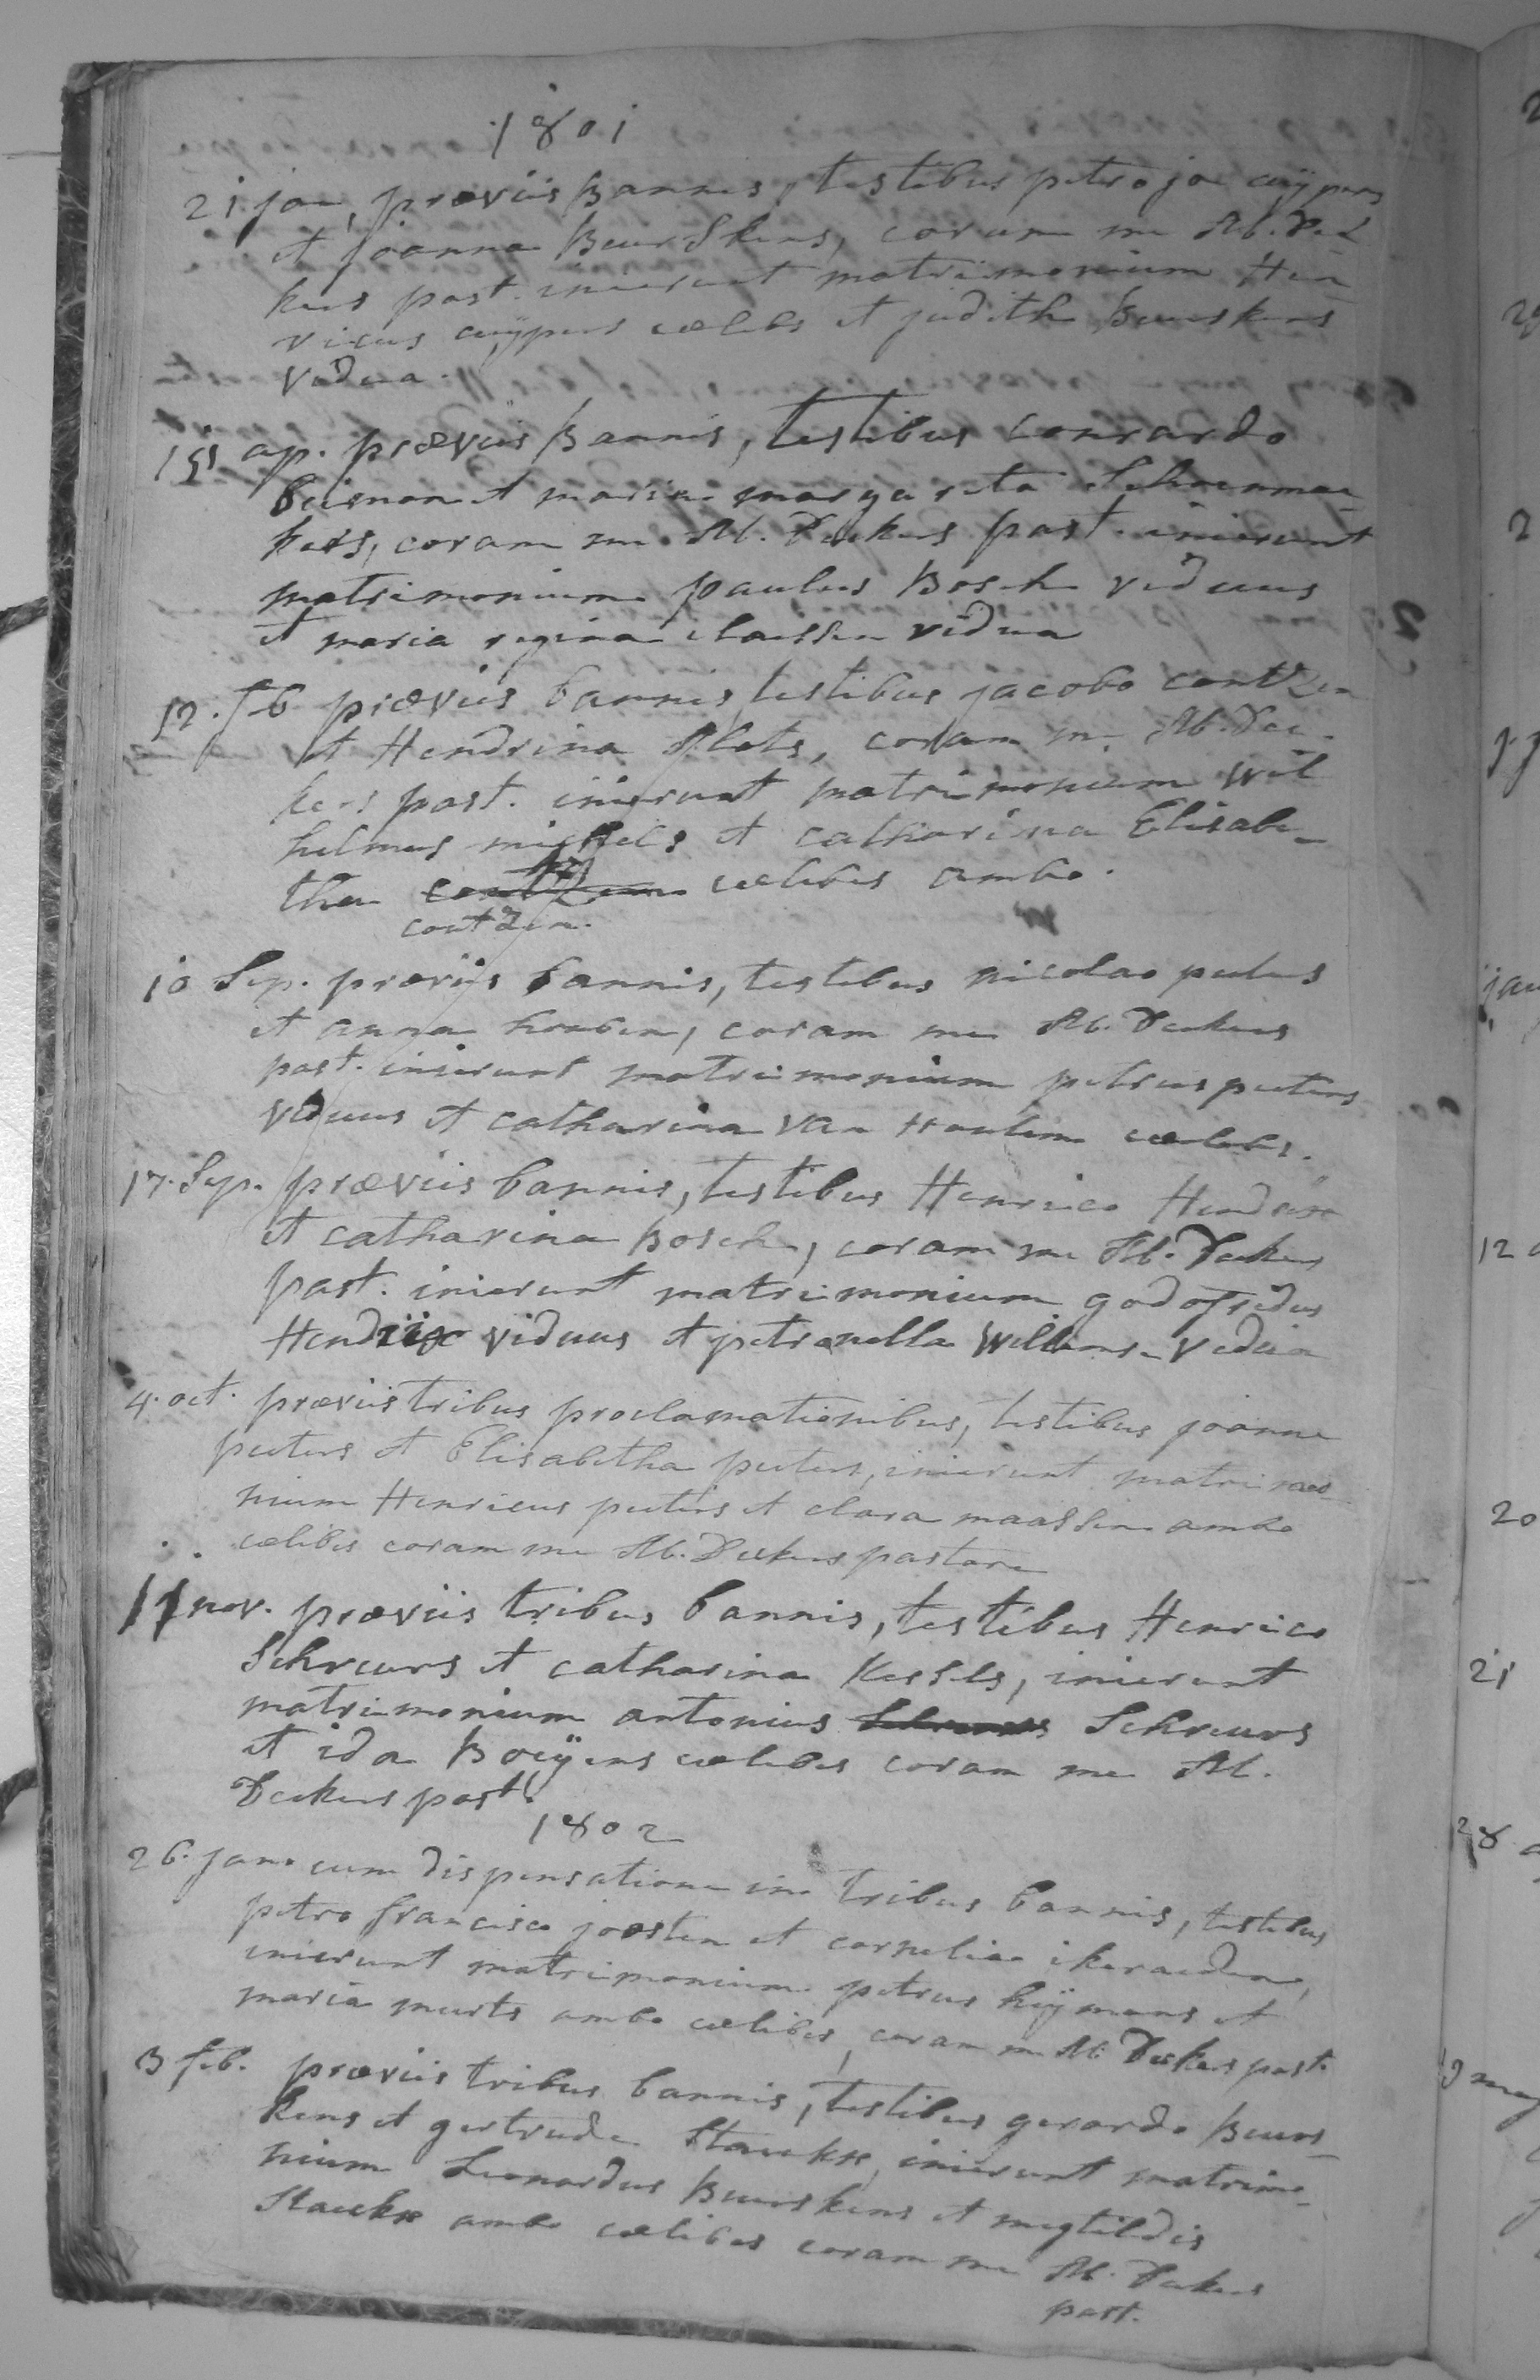 1801
21. jan, præviis Bannis, testibus petro joe cuÿpers
et joanna Beurskens, coram me M. Dec
kers past. inierunt matrimonium Hen
ricus cuÿpers cælebs et judith Beurskens
vidua.
15 ap. præviis Bannis, testibus conrardo
et maria margareta Schoenma-
kers, coram me M. Deckers past. inierunt
matrimonium paulus Bosch viduus
et maria regina claessen vidua
12. feb præviis bannis, testibus jacobo contzen
et Hendrina Slots, coram me M. Dec-
kers past. inierunt matrimonium wil
helmus michels et catharina Elisabe-
tha contzen cælibes ambo.
contzen.
10 Sep. præviis bannis, testibus nicolao peeters
et anna houben, coram me M. Deckers
past. inierunt matrimonium petrus peeters
viduus et catharina van Houtem cælebs.
17. Sep. præviis bannis, testibus Henrico Hendrix
et catharina Bosch, coram me M. Deckers
past. inierunt matrimonium godofridus
Hendrix viduus et petronella willems vidua
4. oct. præviis tribus proclamationibus, testibus joanne
peeters et Elisabetha peeters, inierunt matrimo-
nium Henricus peeters et clara maassen ambo
cælibes coram me M. Deckers pastore
11 nov. præviis tribus bannis, testibus Henrico
Schreurs et catharina Kessels, inierunt
matrimonium antonius Schreurs
et ida Boeÿens cælibes coram me M.
Deckers past.
1802
26. jan. cum dispensatione in tribus bannis, testibus
petro francisco joosten et cornelia
inierunt matrimonium petrus heÿmans et
maria meurts ambo cælibes, coram me M. Deckers past.
3 feb. præviis tribus bannis, testibus gerardo Beurs-
kens et gertrude Stauckx, inierunt matrimo-
nium Leonardus Beurskens et megtildis
Stauckx ambo cælibes coram me M. Deckers
past.